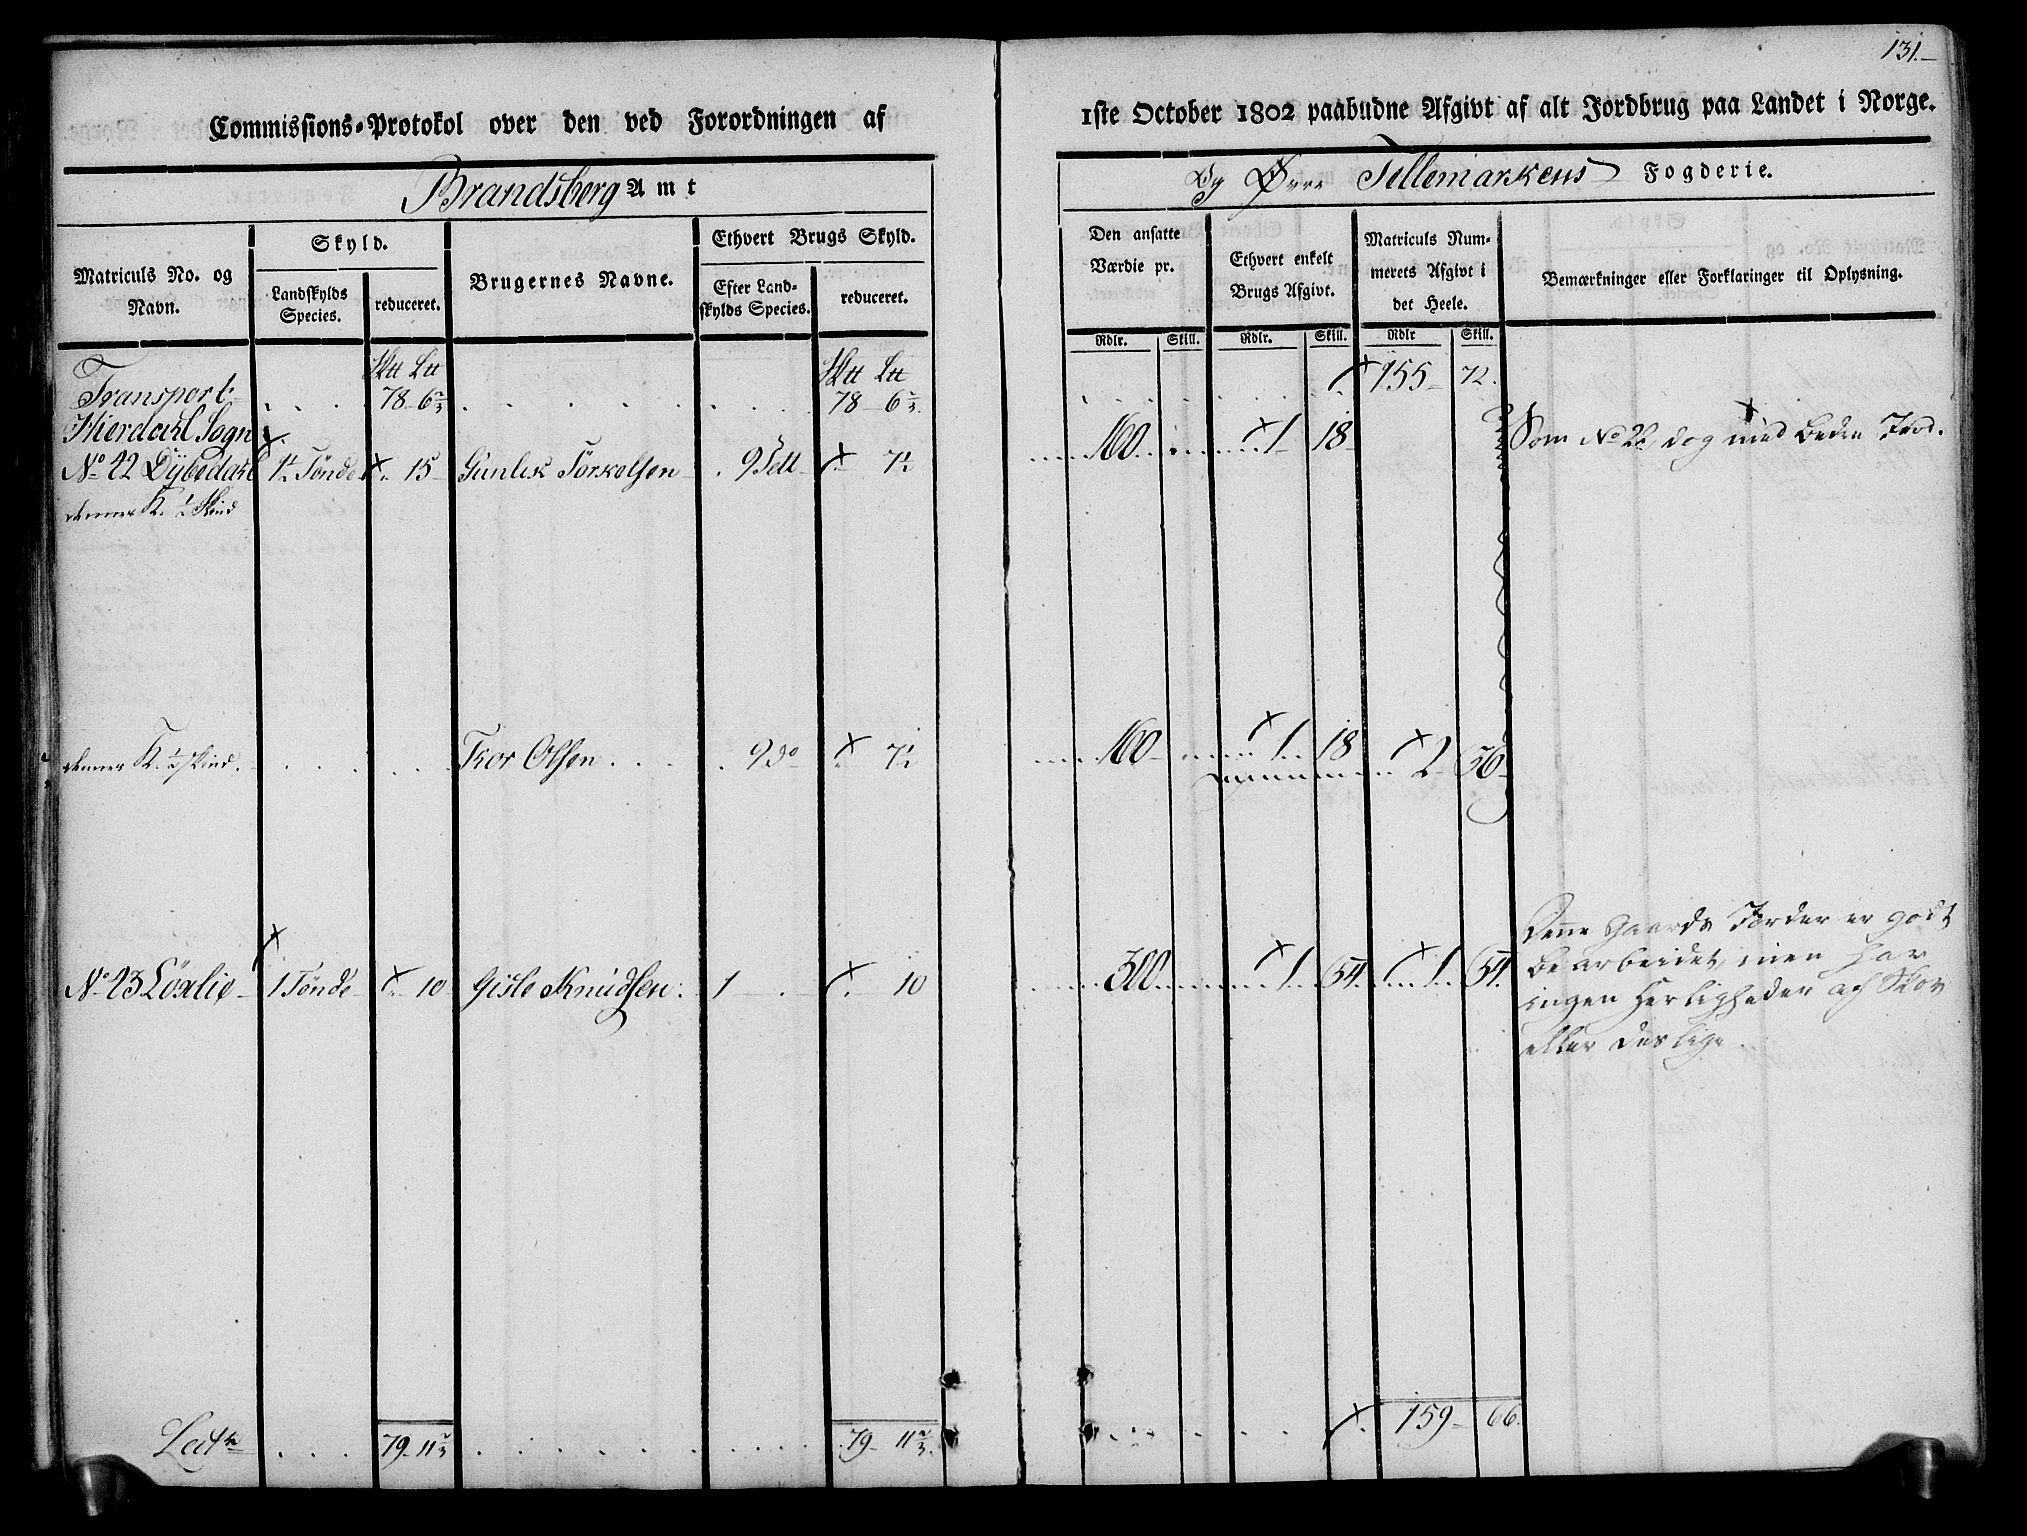 131.
Commissions-Protokol over den ved Forordningen af 1ste October 1802 paabudne Afgivt af alt Jordbrug paa Landet i Norge.
Brandsberg Amt
Og Øvre Tellemarkens Fogderie.
Matriculs No. og Navn.
Skyld.
Landskylds Species.
reduceret.
Brugernes Navne.
Ethvert Brugs Skyld.
Efter Landskylds Species.
reduceret.
Den ansatte Værdie pr.
Rdlr. Skill.
Ethvert enkelt Brugs Afgivt.
Rdlr. Skill.
Matriculs Nummerets Afgivt i det Heele.
Rdlr Skill.
Bemærkninger eller Forklaringer til Oplysning.
Transport 78 6 2/3 78 6 2/3 155 72.
Hierdahl Sogn
No 42 Dybedahl 1½ Tønde 15 Gunlek Torkelsen 9 Sett 7½ 160 1 18 Som No 22, dog med beder Jord.
denne K. ½ Skind
denne K. ½ Skind. Tor Olsen 9 do 7½ 160 1 18 2 36
No 43 Løxlie 1 Tønde 10 Gisle Knudsen 1 10 300 1 54 1 54.
Denne Gaards Jorder er godt
bearbeidet, men har
ingen Herligheder af Skov
eller deslige.
Lat 79 11 2/3 79 11 2/3 159 66.